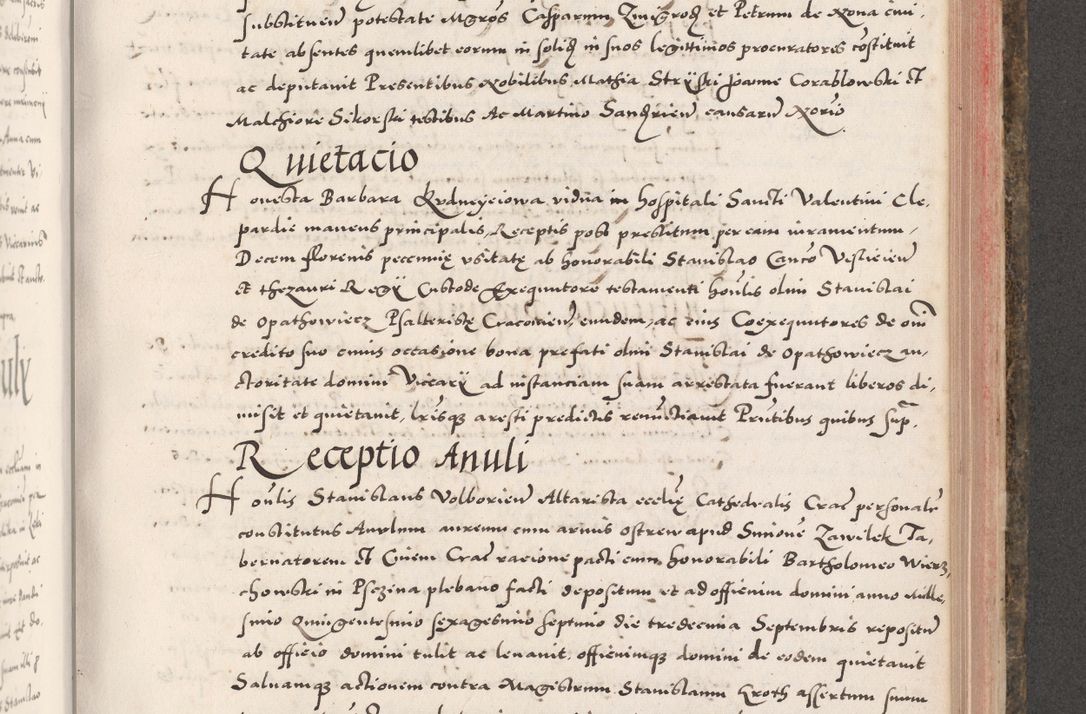 substituen potestate Mgros Casparum Zmigrod et Petrum de Xona civi-
tate absentes quemlibet eorum in solid in suos legittimos procuratores costituit
ac deputavit Presentibus Nobilibus Mathia Stryski Joanne Corablowski et
Malchiore Sikorski testibus Ac Martino Sandrien causarum Norio
Quietacio
Honesta Barbara vidua in hospitali Sancti Valentini Cle-
pardie manens principalis, Receptis post prestitum per eam iuramentum,
Decem florenis pecunie usitate ab honorabili Stanislao
et thezauri Regii Custode Exequutore testamenti honlis olim Stanislai
de Opathowiecz Psalteriste Cracovien, eundem, ac eius Coexequutores de omi
credito suo cuius occasione bona prefati olim Stanislai de Opathowiecz au-
ctoritate domini Vicarii ad instanciam suam arrestata fuerant liberos di-
misit et quietavit, lresque aresti predictis renunctiavit Prntibus quibus sup.
Receptio Anuli
Honlis Stanislaus Volborien Altarista ecclie Cathedralis Crac personalr
constitutus Anulum aureum cum armis ostrew apud Simone Zawilek Ta-
bernatorem et Civem Crac racione pacti cum honorabili Bartholomeo Wierz-
chowski in Psczina plebano facti depositum et ad officium domini anno Mille-
simo Quingentesimo sexagesimo septimo die tredecima Septembris repositum
ab officio domini tulit ac levavit, officiumque domini de eodem quietavit
Salvamque actionem contra Magistrum Stanislaum Kroth assertum suum